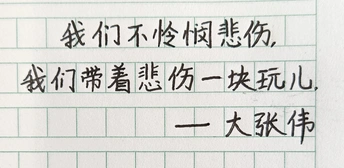 我们不怜悯悲伤,
我们带着悲伤一块玩儿,
— 大张伟